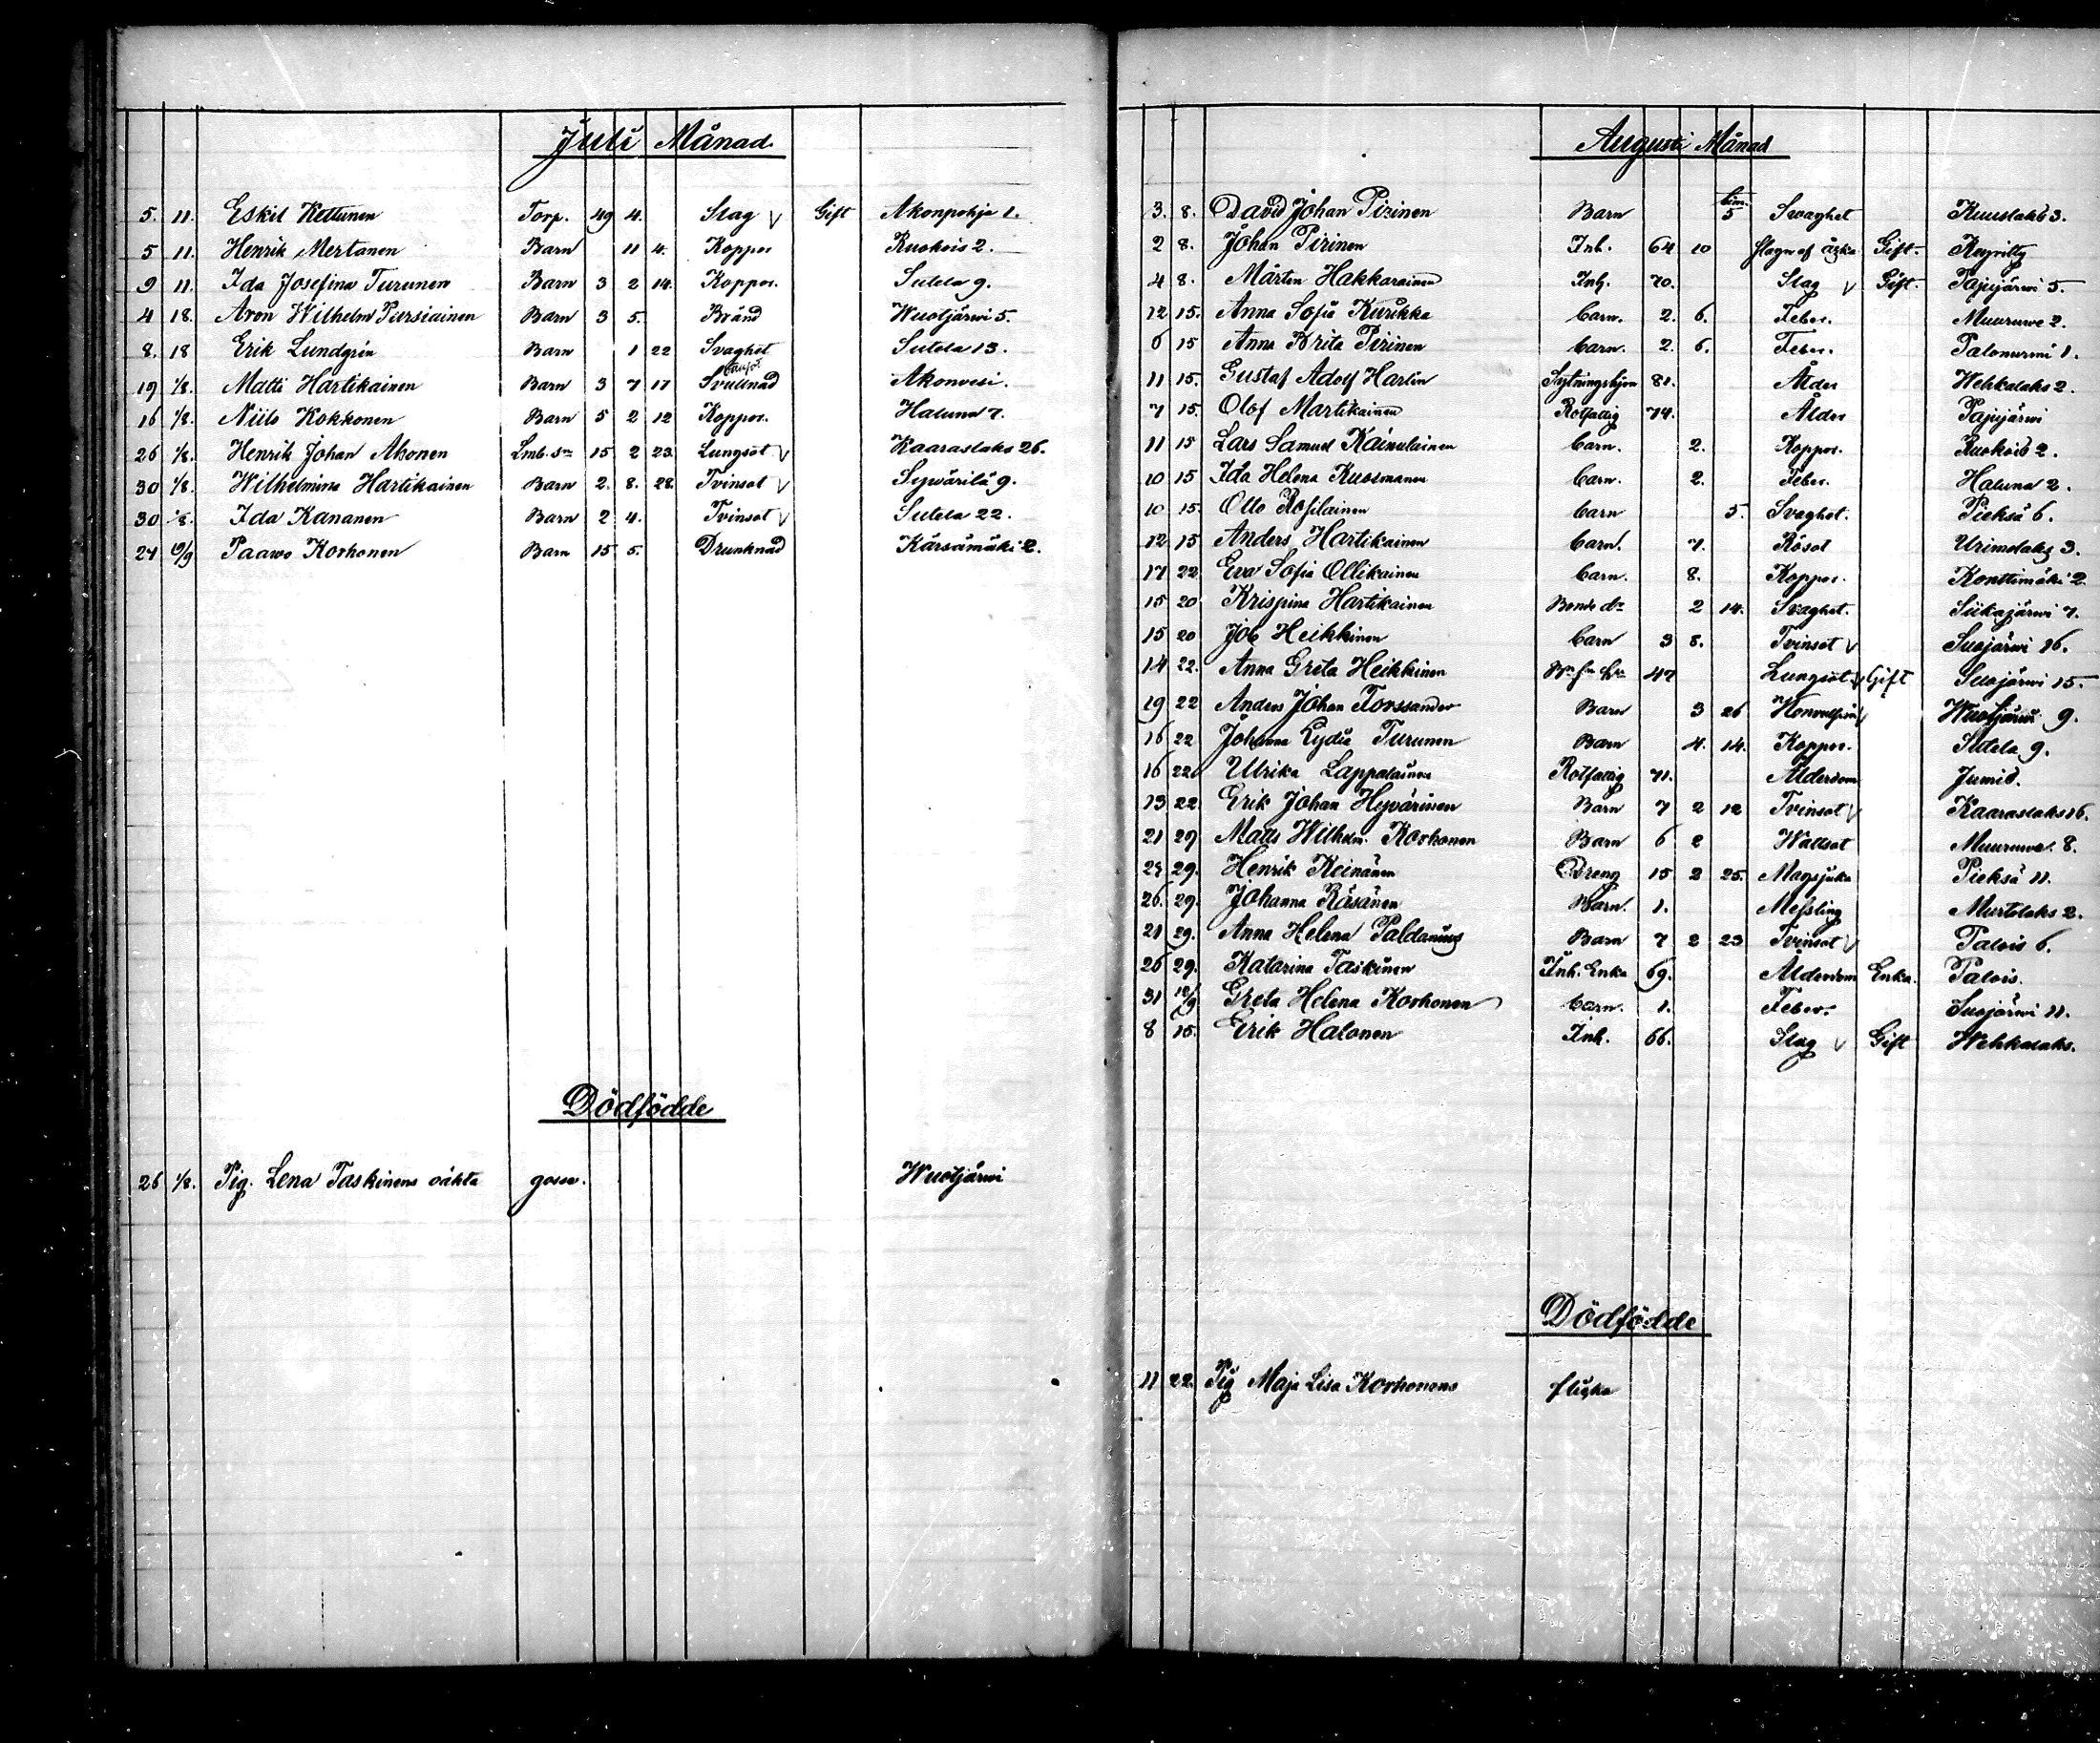 Juli Månad.
5. 11. Eskil Kettunen Torp. 49 4. Slag v Gift Akonpohja 1.
5 11. Henrik Mertanen Barn 11 4. Koppor Ruokois 2.
9 11. Ida Josefina Turunen Barn 3 2 14. Koppor. Sutela 9.
4 18. Aron Wilhelm Pursiainen Barn 3 5. Bränd Wuotjärwi 5.
8. 18 Erik Lundgrén Barn 1 22 Svaghet Sutela 13.
19 1/8. Matti Hartikainen Barn 3 7 17 Svullnad Akonvesi.
16 1/8. Niilo Kokkonen Barn 5 2 12 Koppor. Haluna 7.
26 1/8. Henrik Johan Ahonen Lmb. sn 15 2 23. Lungsot v Kaaraslaks 26.
30 1/8. Wilhelmina Hartikainen Barn 2. 8. 28. Tvinsot v Sywärilä 9.
30 1/8. Ida Kananen Barn 2 4. Tvinsot v Sutela 22.
24 19/9 Paawo Korhonen Barn 15 5. Drunknad Kärsämäki 2.
Dödfödde
26 1/8. Pig. Lena Taskinens oäkta gosse. Wuotjärwi
Augusti Månad
3. 8. David Johan Pirinen Barn tim. 5 Svaghet Kuuslaks 3.
2 8. Johan Pirinen Inh. 64 10 slagn af åska Gift. Keyritty
4 8. Mårten Hakkarainen Inh. 70. Slag v Gift. Pajujärwi 5.
12 15. Anna Sofia Kurikka barn. 2. 6. Feber. Muuruwe 2.
6 15 Anna Brita Pirinen barn. 2. 6. Feber. Palonurmi 1.
11 15. Gustaf Adolf Harlin Sytningshjon 81. Ålder Wehkalaks 2.
7 15. Olof Martikainen Rotfattig 74. Ålder Pajujärwi
11 15 Lars Samuel Kainulainen barn. 2. Koppor. Ruokois 2.
10 15 Ida Helena Kuosmanen barn. 2. Feber. Haluna 2.
10 15. Otto Rosilainen barn 5. Svaghet. Pieksä 6.
12 15 Anders Hartikainen barn. 7. Rösot Urimolaks 3.
17 22 Eva Sofia Ollikainen barn. 8. Koppor. Konttimäki 2.
15 20 Krispina Hartikainen Bonde dr 2 14. Svaghet. Siikajärwi 7.
15 20 Job Heikkinen barn 3 8. Tvinsot v Suojärwi 16.
14 22. Anna Greta Heikkinen 47 Lungsot v Gift Suojärwi 15.
19 22 Anders Johan Forssander Barn 3 26 Wuotjärwi 9.
16 22 Johanna Lydia Turunen Barn 4. 14. Koppor. Sutela 9.
16 22 Ulrika Lappalainen Rotfattig 71. Ålderdom Jumis.
13 22 Erik Johan Hyvärinen Barn 7 2 12 Tvinsot v Kaaraslaks 16.
21 29 Matts Wilhelm Korhonen Barn 6 2 Wattsot Muuruwe. 8.
29. Henrik Keinänen Dreng 15 2 25. Magsjuka Pieksä 11.
26. 29. Johanna Räsänen Barn. 1. Messling Murtolaks 2.
21 29. Anna Helena Paldanius Barn 7 2 23 Tvinsot v Palois 6.
26 29. Katarina Taskinen Inh. Enka 69. Ålderdom Enka. Palois.
31 12/9 Greta Helena Korhonen barn. 1. Feber. Suojärwi 11.
8 15. Erik Halonen Inh. 66. Slag v Gift Wehkalaks.
Dödfödde
11 22. Pig Maja Lisa Korhonens flicka